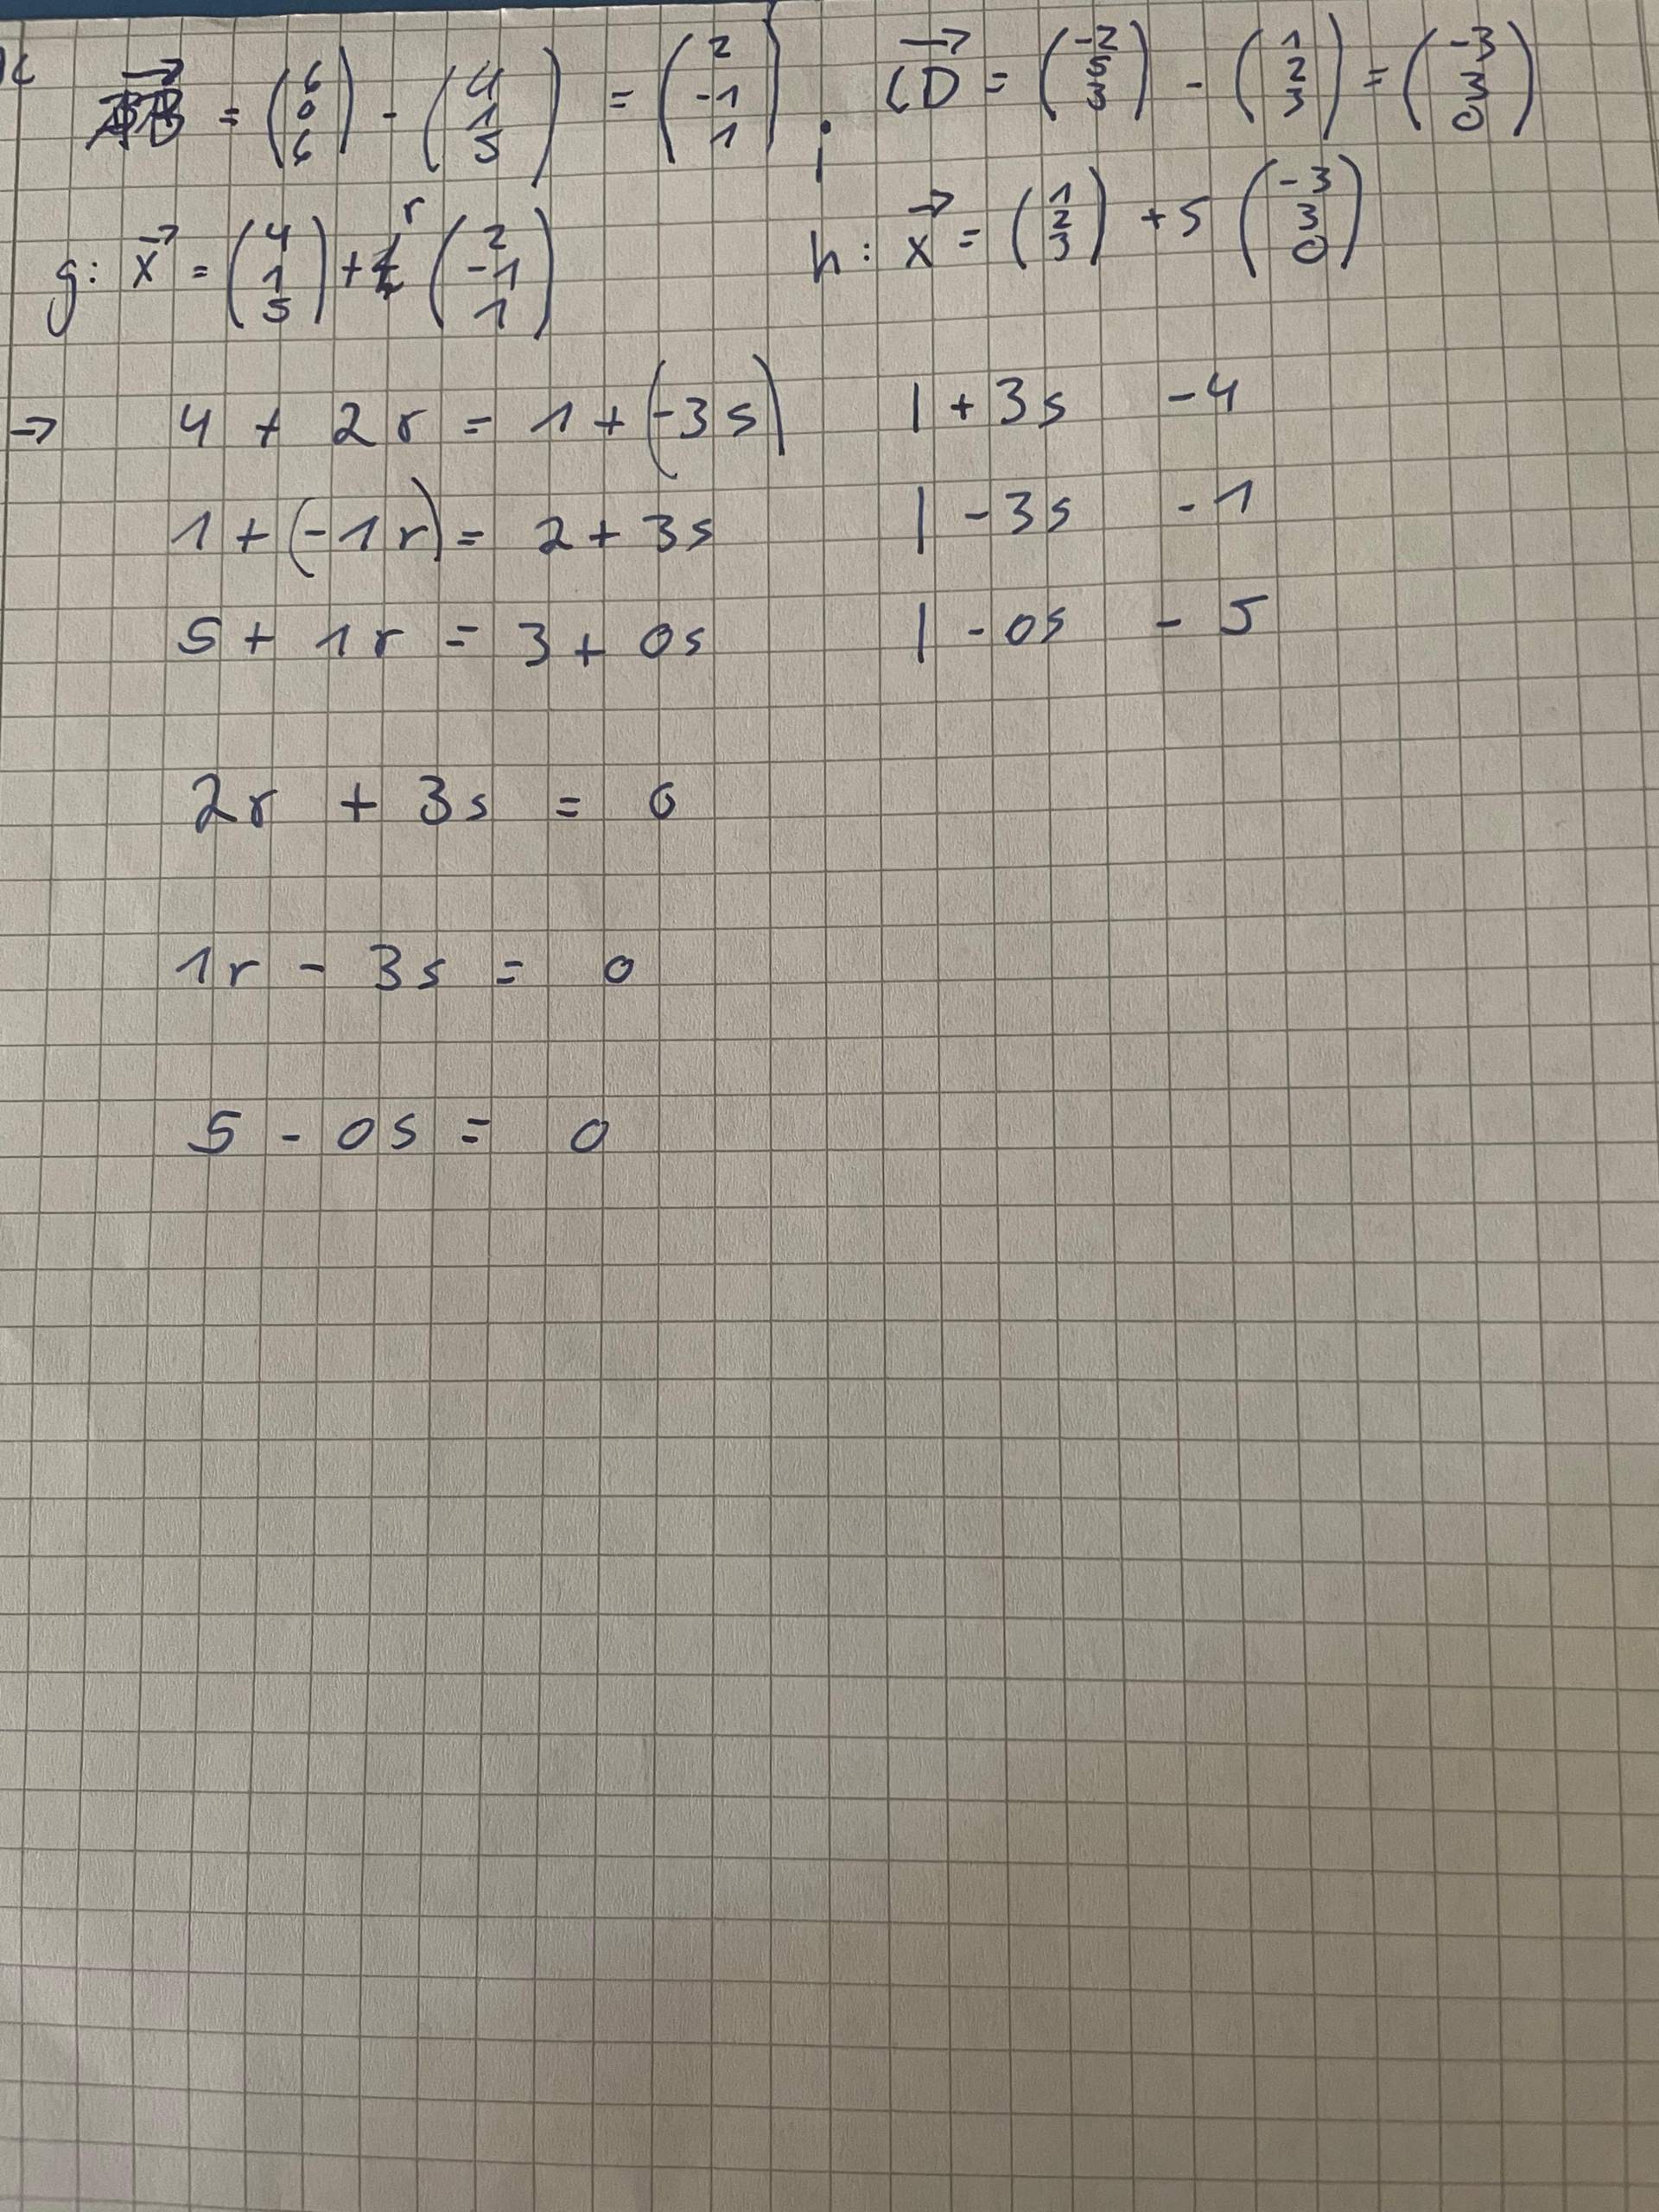 = (6 0 6) - (4 1 5) = (2 -1 1) ; CD = (-2 5 3) - (1 2 3) = (-3 3 0)
g: x = (4 1 5) + r (2 -1 1) h: x = (1 2 3) + s (-3 3 0)
→ 4 + 2r = 1 + (-3s) | + 3s - 4
1 + (-1r) = 2 + 3s | - 3s - 1
5 + 1r = 3 + 0s | - 0s - 5
2r + 3s = 0
1r - 3s = 0
5 - 0s = 0